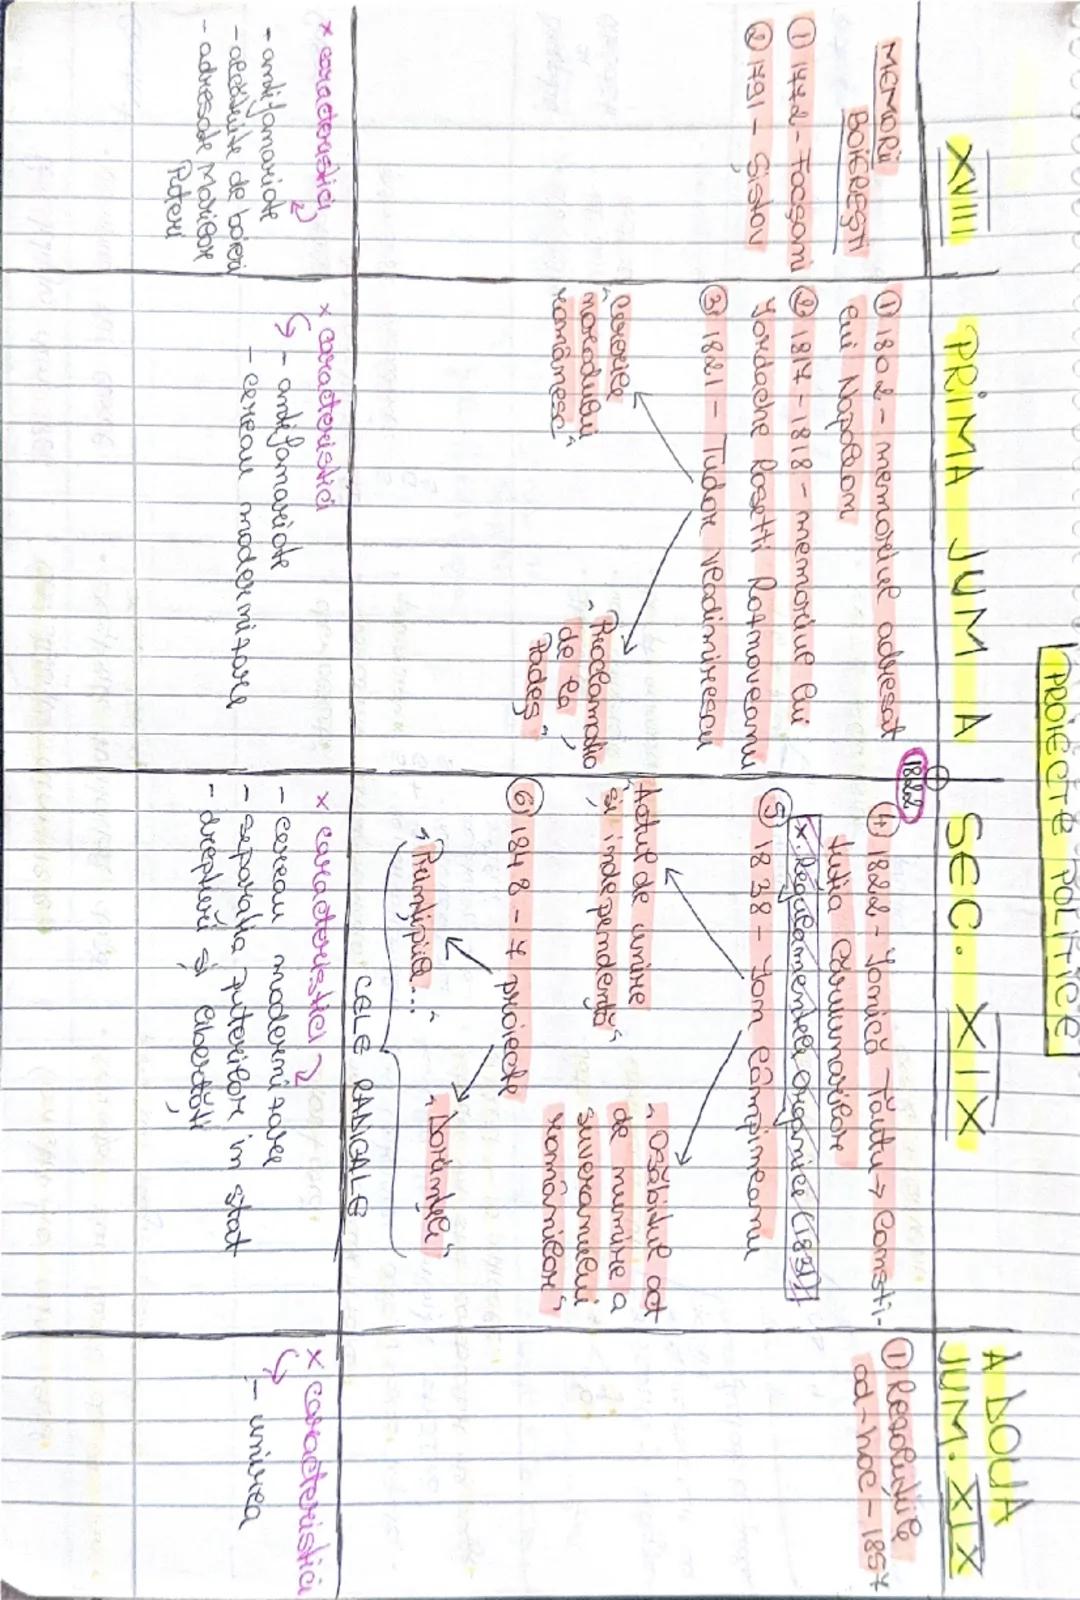 PROIECTE POLITICE
XVIII
MEMORII
BOIEREȘTI
① 1772 - Focșani
② 1791 - Șiștov
x caracteristici
- antifanariote
- alcătuite de boieri
- adresate Marilor
Puteri
PRIMA JUM A SEC. XIX
① 1802 - memoriul adresat
lui Napoleon
② 1817 - 1818 - memoriul lui
Iordache Rosetti Roznoveanu
③ 1821 - Tudor Vladimirescu
"Cererile
norodului
românesc"
"Proclamația
de la
Padeș"
x caracteristici
- antifanariote
- cereau modernizare
1822
④ 1822 - Ionică Tăutu → Consti-
tuția Cărvunarilor
x Regulamentele Organice (1831)
⑤ 1838 - Ion Câmpineanu
"Actul de unire
și independență"
"Osăbitul act
de numire a
suveranului
românilor"
⑥ 1848 - 7 proiecte
"Prințipiile..."
"Dorințele"
CELE RADICALE
x caracteristici
- cereau modernizare
- separația puterilor în stat
- drepturi și libertăți
A DOUA
JUM. XIX
① Rezoluțiile
ad-hoc - 1857
x caracteristici
- unirea